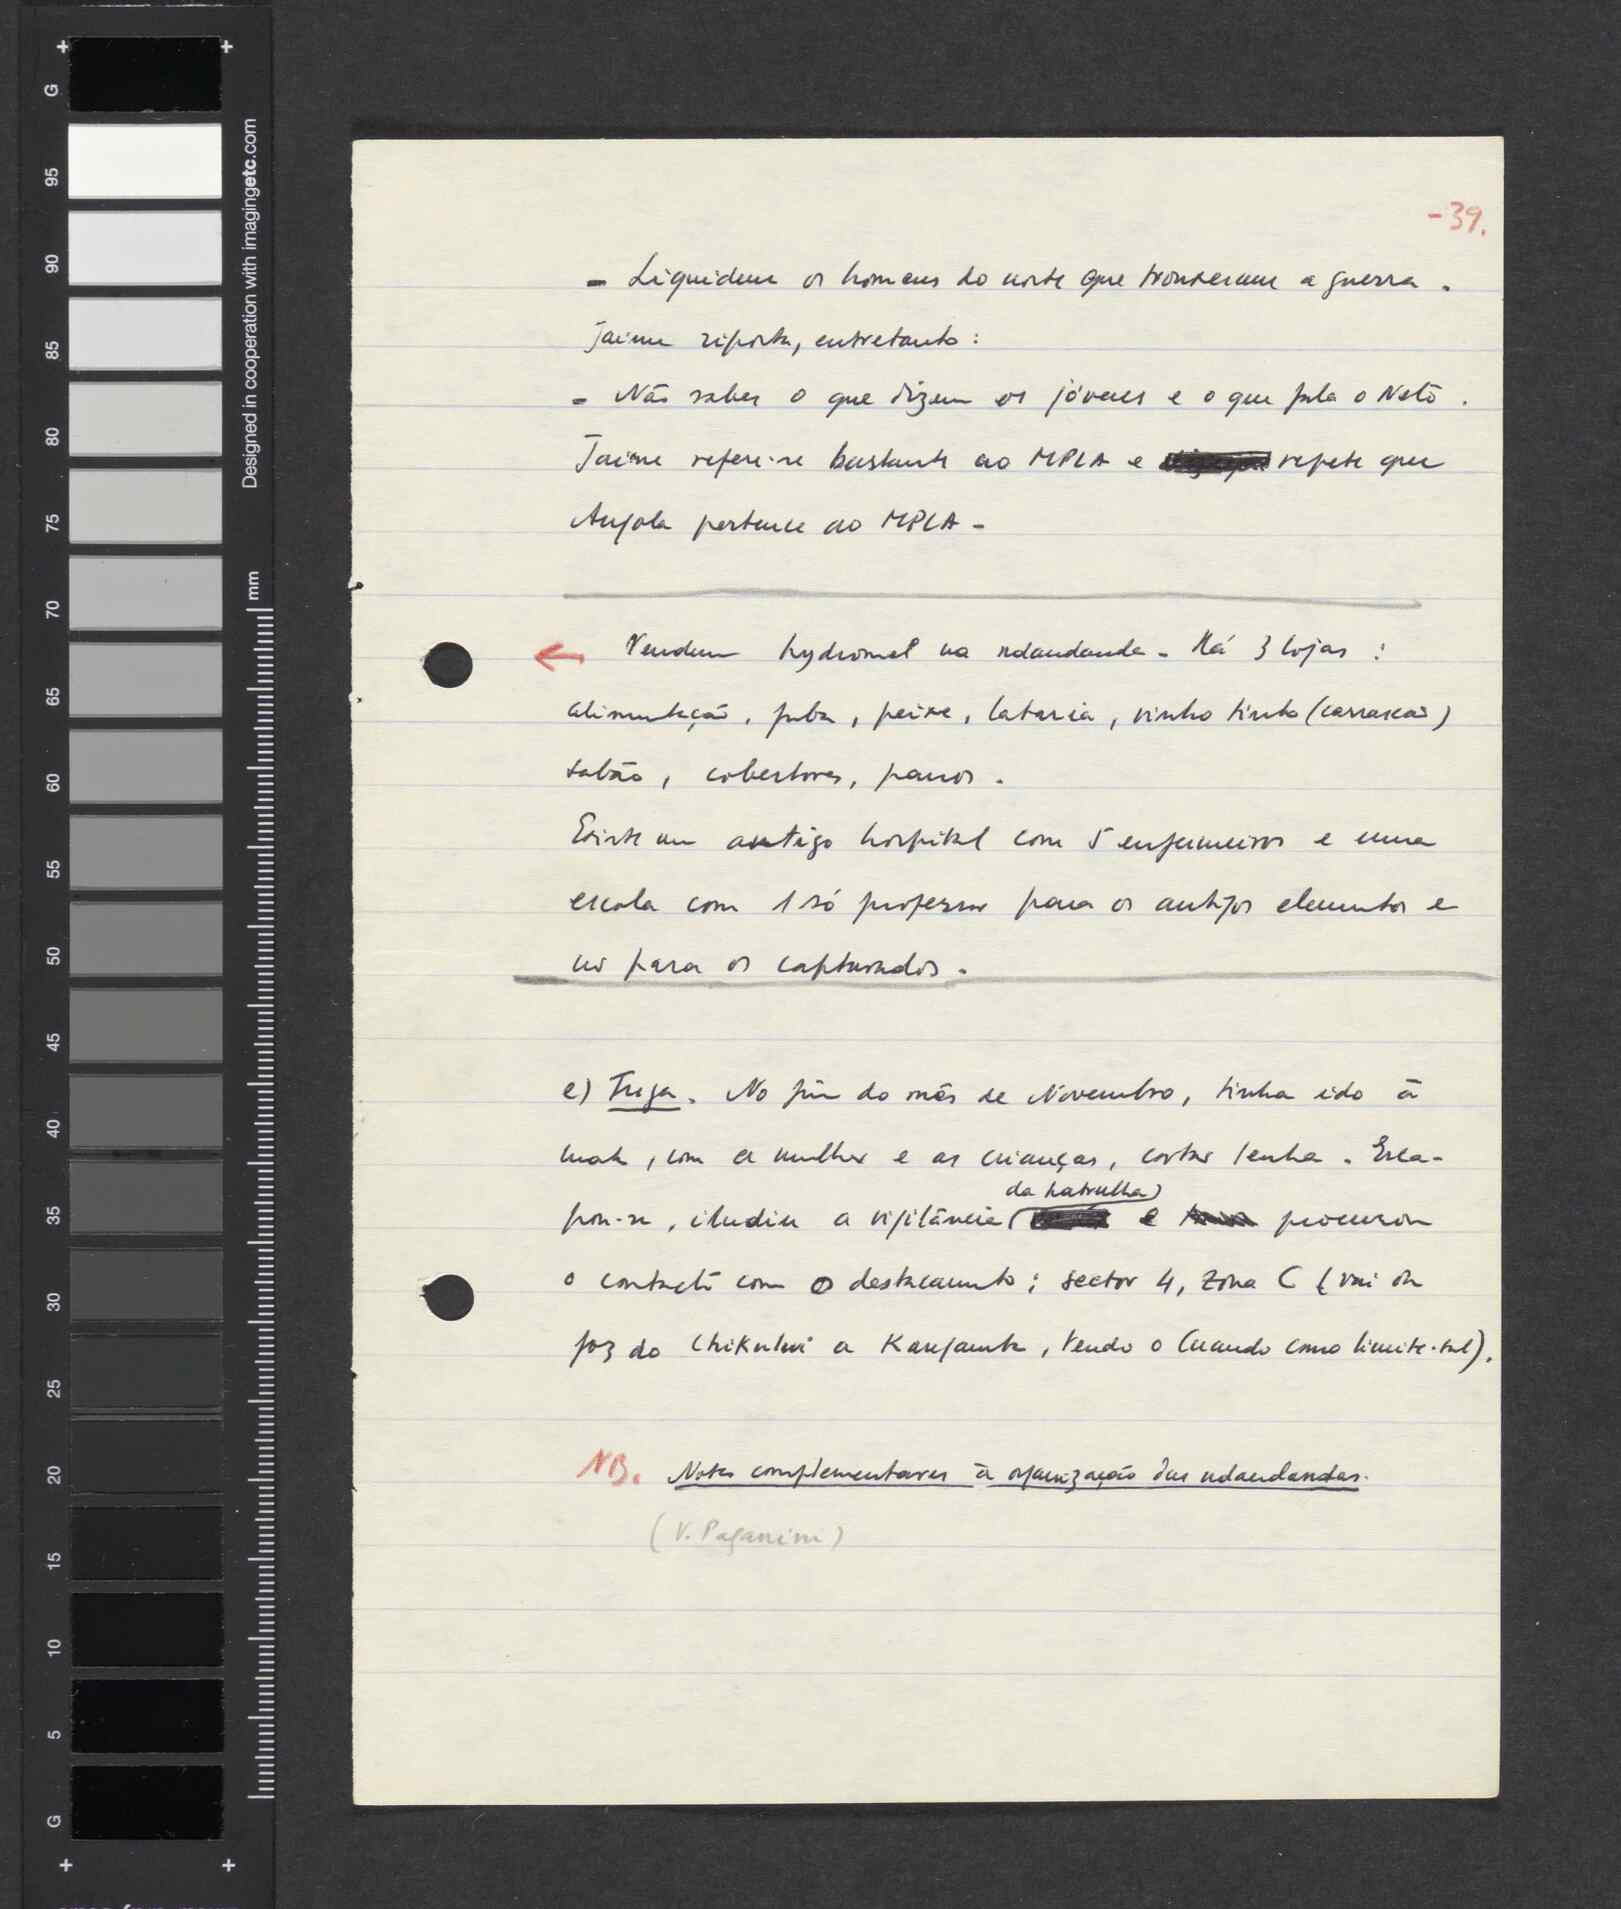 -39.
- Liquidem os homens do norte que trouxeram a guerra.
Jaime riposta, entretanto:
- Não sabes o que dizem os jóvenes e o que fala o Neto.
Jaime refere-se bastante ao MPLA e repete que
Angola pertence ao MPLA -
← Vendem hydromel na ndandanda - Há 3 lojas :
alimentação, fuba, peixe, lataria, vinho tinto (carrascão)
sabão, cobertores, panos.
Existe um antigo hospital com 5 enfermeiros e uma
escola com 1 só professor para os antigos elementos e
no para os capturados.
e) Fuga. No fim do mês de Novembro, tinha ido à
mata, com a mulher e as crianças, cortar lenha. Esca-
da patrulha
pou-se, iludiu a vigilância e procurou
o contacto com o destacamento; sector 4, Zona C (vai da
foz do Chikului a Kangamba, tendo o Cuando como limite-sul).
NB. Notas complementares à organização das ndandandas.
(V. Paganini)
G
95
90
85
80
75
70
65
60
55
50
45
40
35
30
25
20
15
10
5
G
Designed in cooperation with imagingetc.com
mm